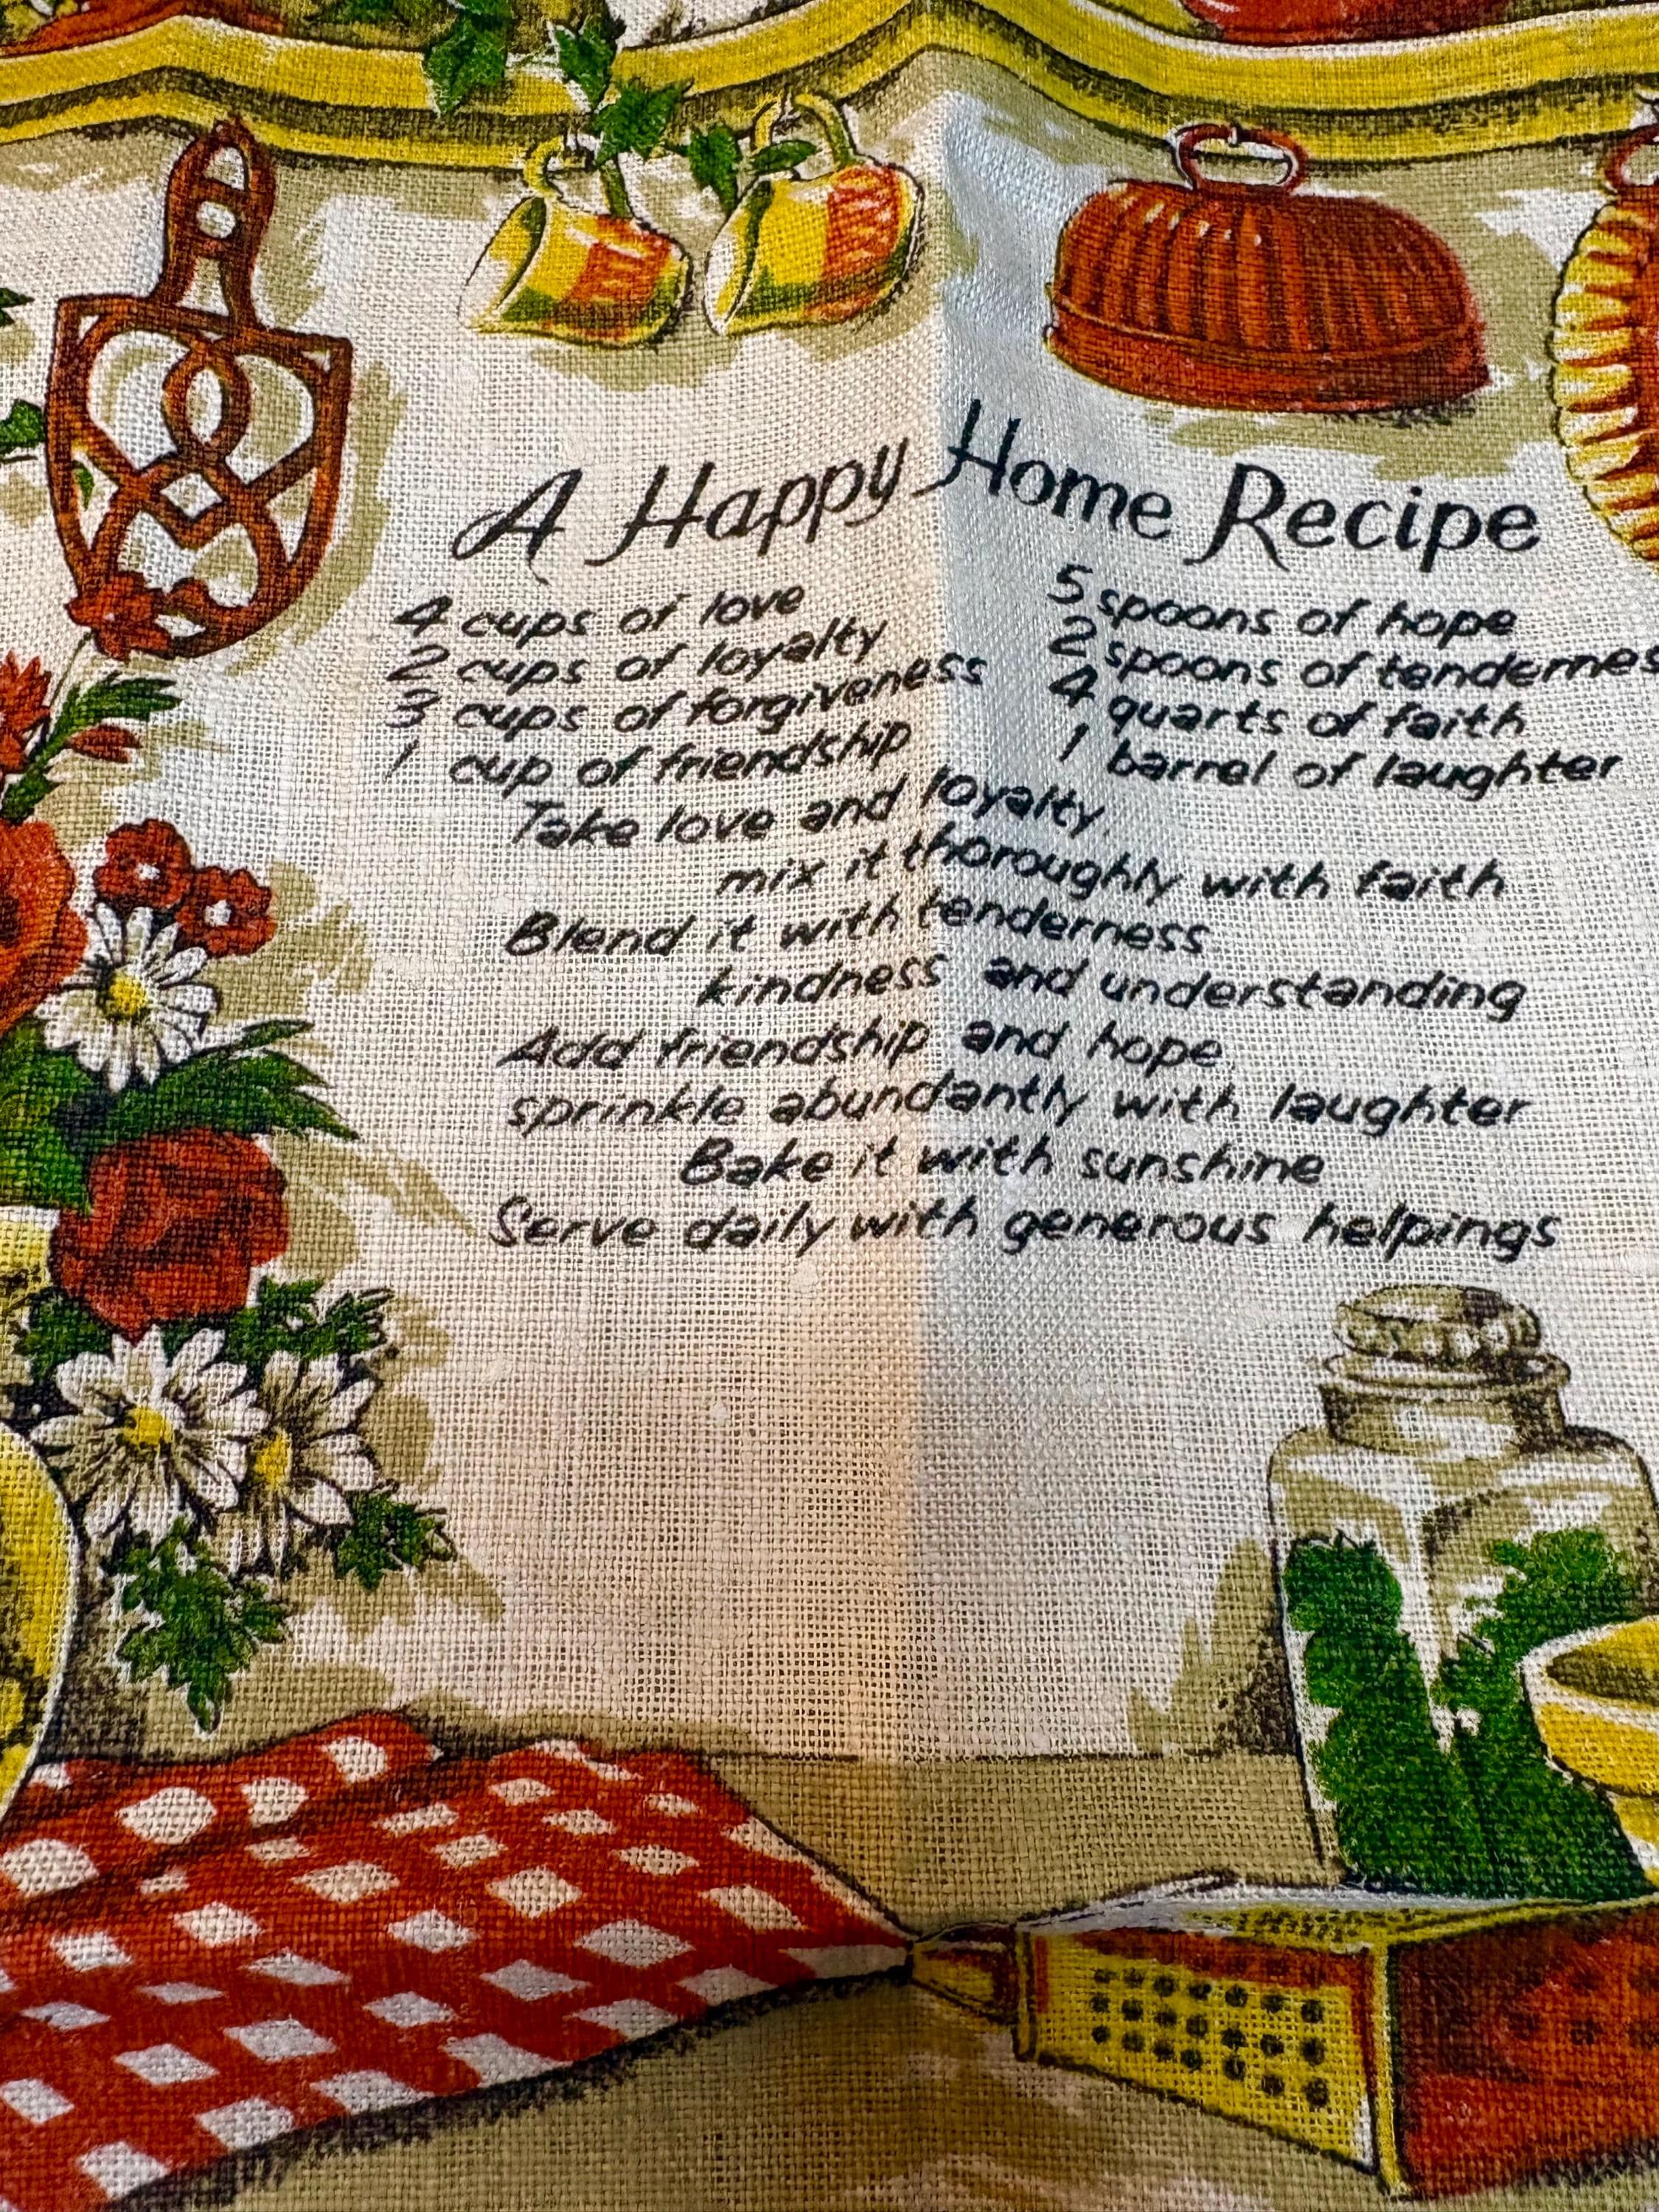 A Happy Home Recipe
4 cups of love
2 cups of loyalty
3 cups of forgiveness
1 cup of friendship
5 spoons of hope
2 spoons of tendernes
4 quarts of faith
1 barrel of laughter
Take love and loyalty,
mix it thoroughly with faith
Blend it with tenderness
kindness and understanding
Add friendship and hope,
sprinkle abundantly with laughter
Bake it with sunshine
Serve daily with generous helpings